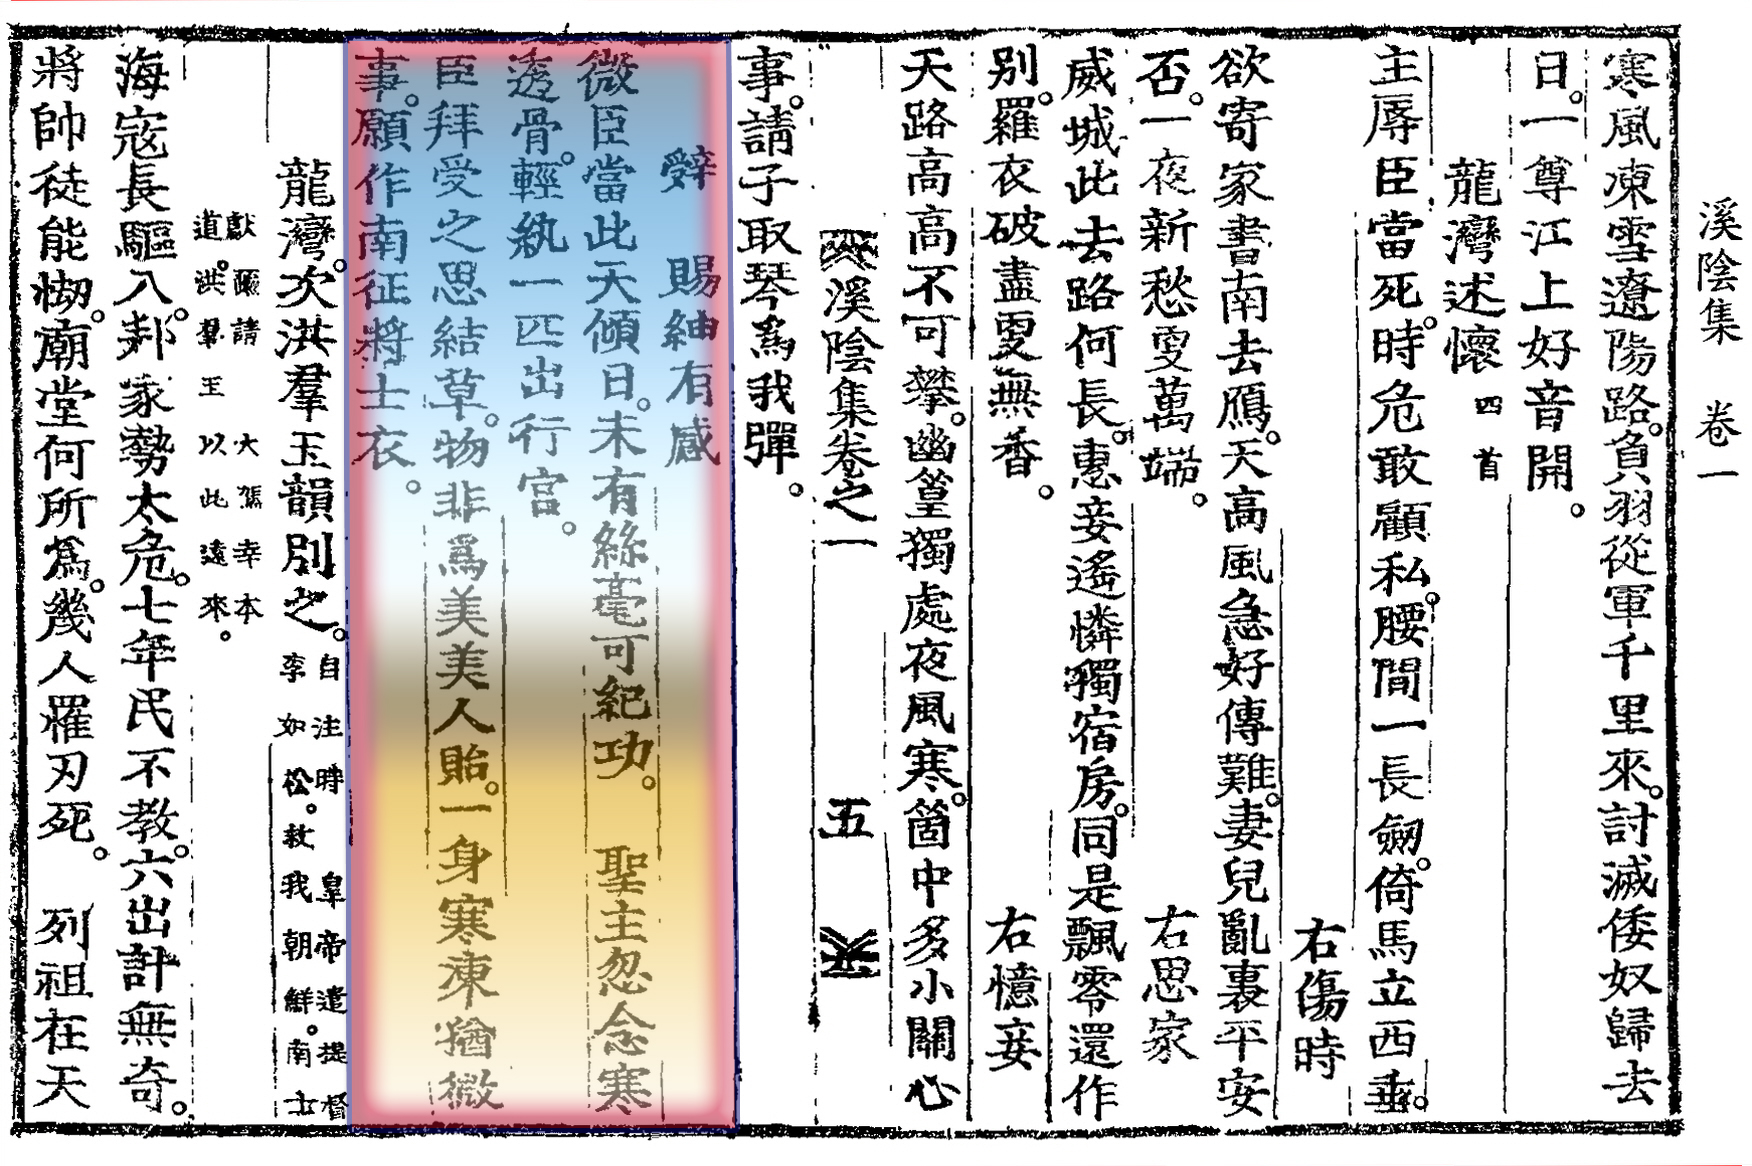 溪陰集 卷一
寒風凍雪遼陽路。負羽從軍千里來。討滅倭奴歸去
日。一尊江上好音開。
龍灣述懷 四首
主辱臣當死。時危敢顧私。腰間一長劒。倚馬立西垂。
右傷時
欲寄家書南去鴈。天高風急好傳難。妻兒亂裏平安
否。一夜新愁雯萬端。
右思家
威城此去路何長。惠妾遙憐獨宿房。同是飄零還作
別。羅衣破盡雯無香。
右憶妾
天路高高不可攀。幽篁獨處夜風寒。箇中多小關心
溪陰集卷之一 五
事。請子取琴爲我彈。
辤 賜紬有感
微臣當此天傾日。未有絲毫可紀功。 聖主忽念寒
透骨。輕紈一匹出行宮。
臣拜受之思結草。物非爲美美人貽。一身寒凍猶微
事。願作南征將士衣。
龍灣。次洪羣玉韻別之。自注時 皇帝遣提督李如松。救我朝鮮。南士
獻 請 大駕幸本道。洪羣王以此遠來。
海寇長驅入。邦家勢太危。七年民不教。六出計無奇。
將帥徒能糊。廟堂何所爲。幾人罹刃死。 列祖在天